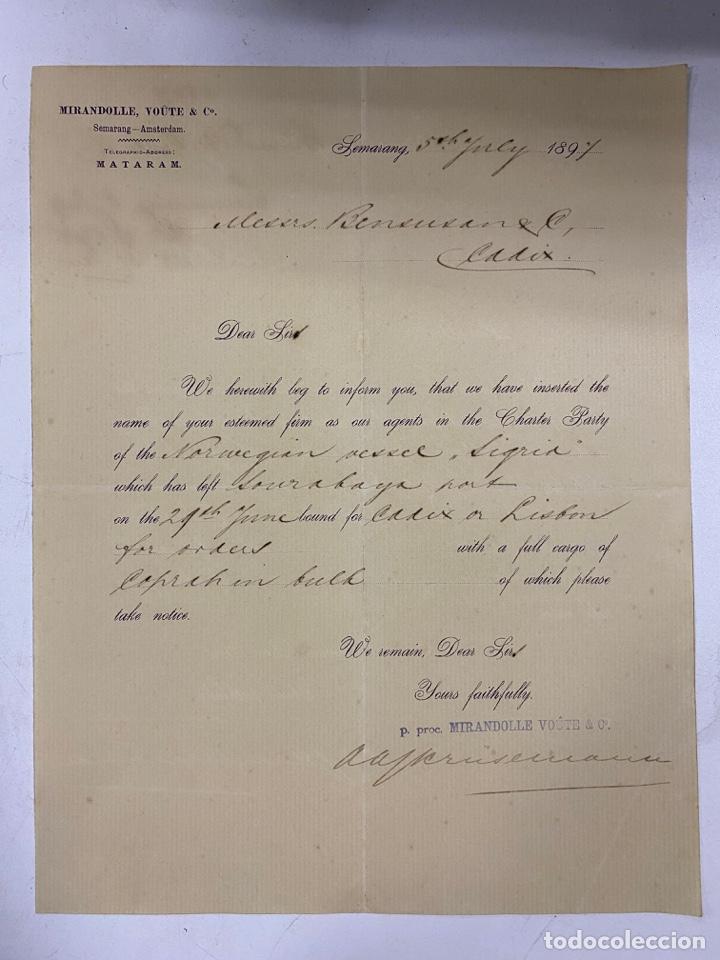 MIRANDOLLE, VOÛTE & Co.
Semarang—Amsterdam.
TELEGRAPHIC-ADDRESS:
MATARAM.
Semarang, 5th July 1897
Messrs. Bensusan & C,
Cadix.
Dear Sirs
We herewith beg to inform you, that we have inserted the
name of your esteemed firm as our agents in the Charter Party
of the Norwegian vessel „Sigrid"
which has left Sourabaya port
on the 29th June bound for Cadix or Lisbon
for orders with a full cargo of
Coprah in bulk of which please
take notice.
We remain, Dear Sirs
Yours faithfully.
p. proc. MIRANDOLLE VOÛTE & Co.
todocoleccion
todocoleccion.net